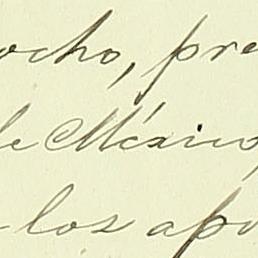 ocho, pre
de México,
los apu